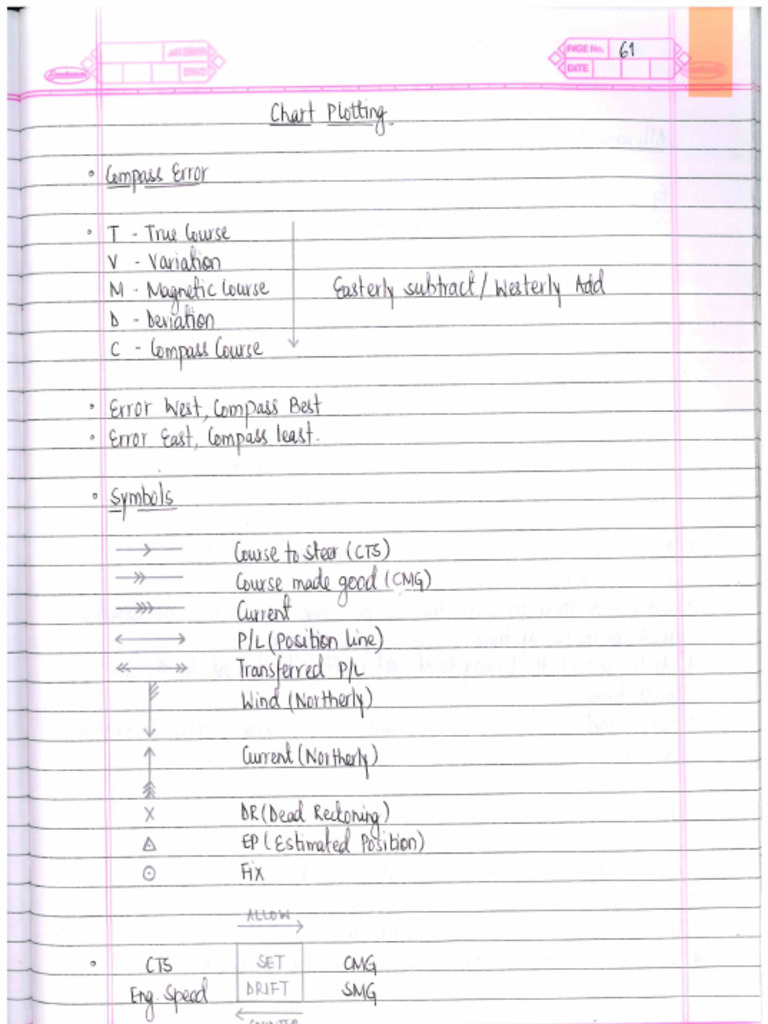 PAGE No. 61
DATE
Chart Plotting.
• Compass Error
• T - True Course
V - Variation
M - Magnetic Course
Easterly subtract / Westerly Add
D - Deviation
C - Compass Course
• Error West, Compass Best
• Error East, Compass least.
• Symbols
Course to steer (CTS)
Course made good (CMG)
Current
P/L (Position line)
Transferred P/L
Wind (Northerly)
Current (Northerly)
X DR (Dead Reckoning)
EP (Estimated Position)
Fix
ALLOW
• CTS SET CMG
Eng. Speed DRIFT SMG